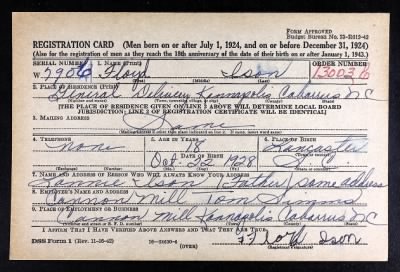 FORM APPROVED
Budget Bureau No. 33-R012-42
REGISTRATION CARD (Men born on or after July 1, 1924, and on or before December 31, 1924)
(Also for the registration of men as they reach the 18th anniversary of the date of their birth on or after January 1, 1943.)
SERIAL NUMBER 1. NAME (Print) ORDER NUMBER
W. Floyd Ison 13003
(First) (Middle) (Last)
2. PLACE OF RESIDENCE (Print)
General Delivery Kannapolis Cabarrus N C
(Number and street) (Town, township, village, or city) (County) (State)
[THE PLACE OF RESIDENCE GIVEN ON LINE 2 ABOVE WILL DETERMINE LOCAL BOARD
JURISDICTION; LINE 2 OF REGISTRATION CERTIFICATE WILL BE IDENTICAL]
3. MAILING ADDRESS
Same
[Mailing address if other than place indicated on line 2. If same, insert word same]
4. TELEPHONE 5. AGE IN YEARS 6. PLACE OF BIRTH
none 18 Lancaster
DATE OF BIRTH
Oct. 22 1928 S. C.
(Exchange) (Number) (Mo.) (Day) (Yr.) (State or country)
7. NAME AND ADDRESS OF PERSON WHO WILL ALWAYS KNOW YOUR ADDRESS
Ison (Father) same address
8. EMPLOYER'S NAME AND ADDRESS
Cannon Mill Tom Simms
9. PLACE OF EMPLOYMENT OR BUSINESS
Cannon Mill Kannapolis Cabarrus N C
(Number and street or R. F. D. number) (Town) (County) (State)
I AFFIRM THAT I HAVE VERIFIED ABOVE ANSWERS AND THAT THEY ARE TRUE.
Floyd Ison
DSS Form 1 (Rev. 11-16-42) (OVER) (Registrant's signature)